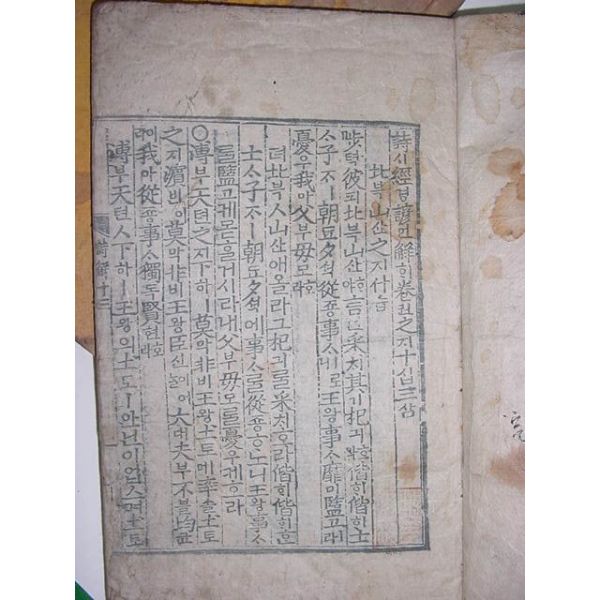 詩시經경諺언解해卷권之지十십三삼
北북山산之지什십
陟텩彼피北북山산ᄒᆞ야言언采ᄎᆡ其기杞긔호라偕ᄒᆡ偕ᄒᆡ士ᄉᆞ
子ᄌᆞㅣ朝됴夕셕從죵事ᄉᆞㅣ로니王왕事ᄉᆞ靡미盬고ㅣ라
憂우我아父부母모호라
뎌北북山산애올라그杞긔ᄅᆞᆯ采ᄎᆡ호라偕ᄒᆡ偕ᄒᆡᄒᆞᆫ
士ᄉᆞ子ᄌᆞㅣ朝됴夕셕에事ᄉᆞᄅᆞᆯ從죵ᄒᆞ노니王왕事ᄉᆞ
ᄅᆞᆯ盬고케몯ᄒᆞᆯ거시라내父부母모ᄅᆞᆯ憂우케호라
○溥부天텬之지下하ㅣ莫막非비王왕土토ㅣ며率솔土토
之지濱빈이莫막非비王왕臣신이어ᄂᆞᆯ大대夫부不블均균이라
我아從죵事ᄉᆞ獨독賢현호라
溥부天텬ㅅ下하ㅣ王왕의土토ㅣ아닌이업스며土토
詩解十三